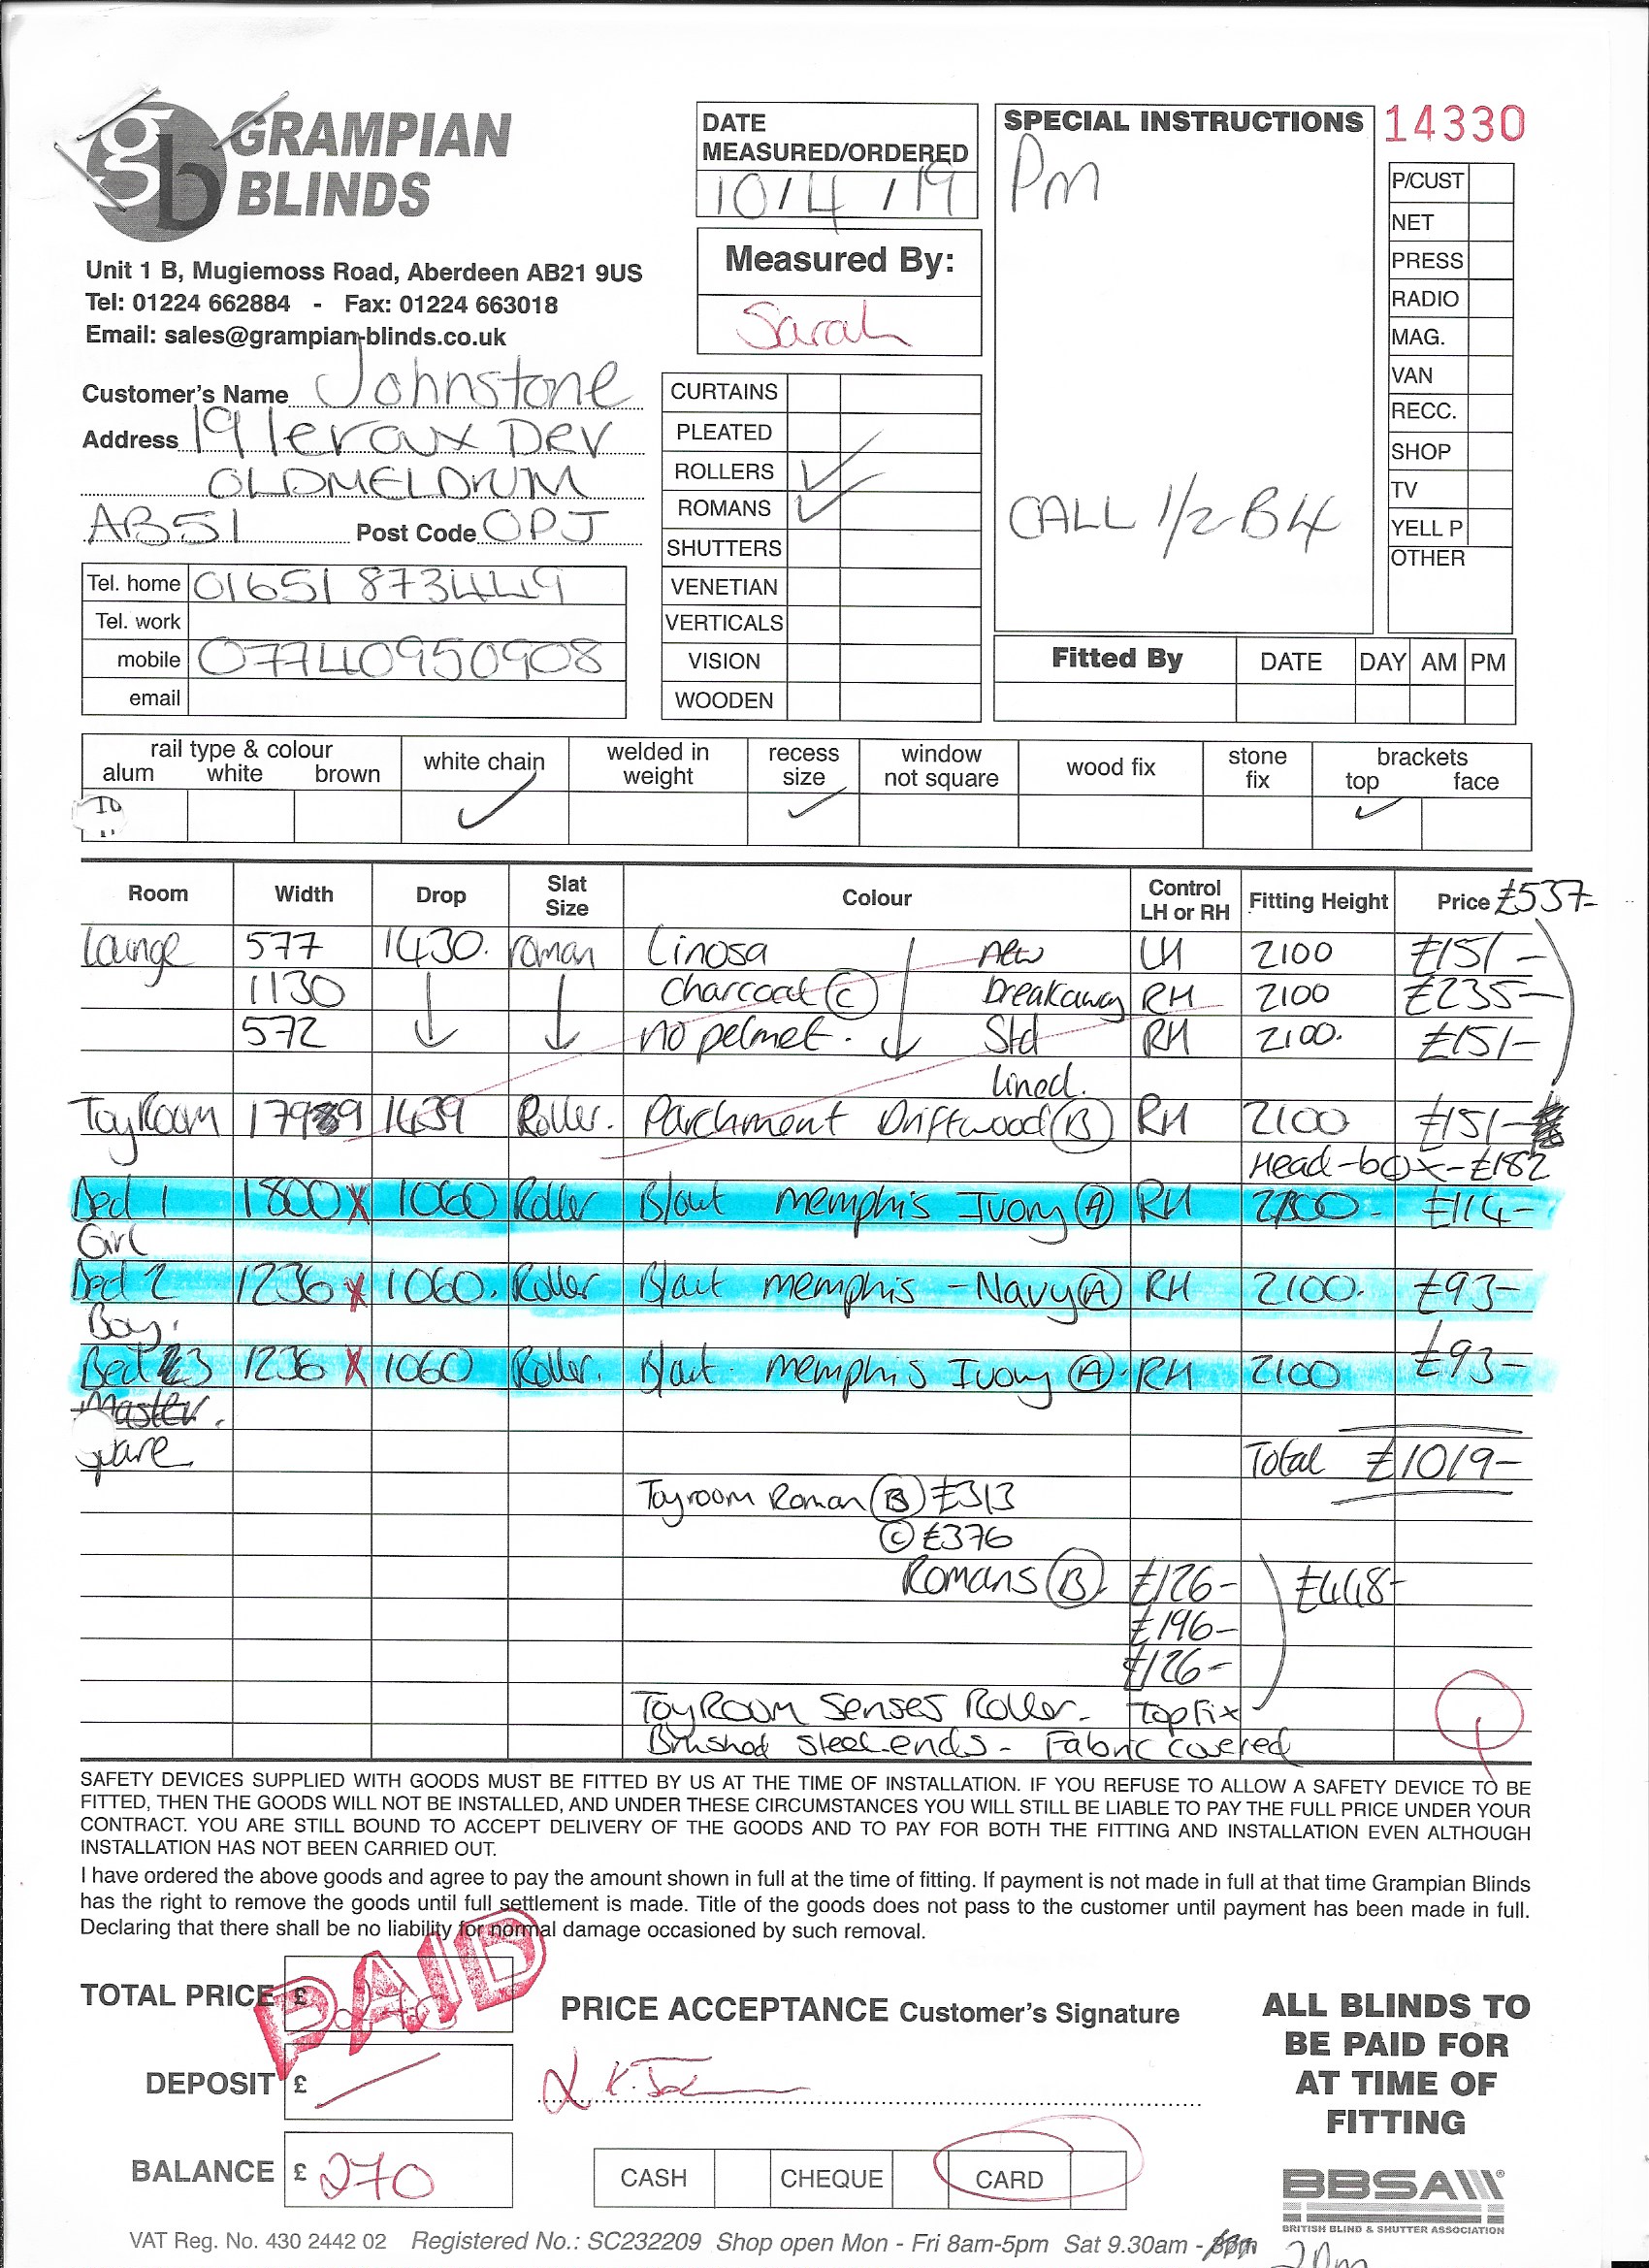 gb GRAMPIAN BLINDS
Unit 1 B, Mugiemoss Road, Aberdeen AB21 9US
Tel: 01224 662884 - Fax: 01224 663018
Email: sales@grampian-blinds.co.uk
Customer's Name Johnstone
Address 19 leroux Dev
OLDMELDRUM
AB51 Post Code OPJ
Tel. home 01651 873449
Tel. work
mobile 07740950908
email
DATE
MEASURED/ORDERED
10/4/19
Measured By:
Sarah
CURTAINS
PLEATED
ROLLERS ✓
ROMANS ✓
SHUTTERS
VENETIAN
VERTICALS
VISION
WOODEN
SPECIAL INSTRUCTIONS
Pm
CALL 1/2 B4
14330
P/CUST
NET
PRESS
RADIO
MAG.
VAN
RECC.
SHOP
TV
YELL P
OTHER
Fitted By DATE DAY AM PM
rail type & colour
alum white brown
white chain ✓
welded in weight
recess size ✓
window not square
wood fix
stone fix
brackets
top ✓ face
Room Width Drop Slat Size Colour Control LH or RH Fitting Height Price £537-
Lounge 577 1430. roman Linosa New LH 2100 £151-
1130 Charcoal (C) breakaway RH 2100 £235-
572 no pelmet. Std RH 2100. £151-
lined.
Toy Room 1789 1439 Roller. Parchment Driftwood (B) RH 2100 £151-
Head-box-£182
Bed 1 1800 x 1060 Roller B/out memphis Ivory (A) RH 2100- £114-
Girl
Bed 2 1236 x 1060. Roller B/out memphis - Navy (A) RH 2100. £93-
Boy.
Bed 3 1236 x 1060 Roller. B/out. memphis Ivory (A). RH 2100 £93-
Master.
Spare
Total £1019-
Toyroom Roman (B) £313
(C) £376
Romans (B) £126- £448-
£196-
£126-
Toy Room Senses Roller. Top fix
Brushed steel ends - Fabric covered
SAFETY DEVICES SUPPLIED WITH GOODS MUST BE FITTED BY US AT THE TIME OF INSTALLATION. IF YOU REFUSE TO ALLOW A SAFETY DEVICE TO BE
FITTED, THEN THE GOODS WILL NOT BE INSTALLED, AND UNDER THESE CIRCUMSTANCES YOU WILL STILL BE LIABLE TO PAY THE FULL PRICE UNDER YOUR
CONTRACT. YOU ARE STILL BOUND TO ACCEPT DELIVERY OF THE GOODS AND TO PAY FOR BOTH THE FITTING AND INSTALLATION EVEN ALTHOUGH
INSTALLATION HAS NOT BEEN CARRIED OUT.
I have ordered the above goods and agree to pay the amount shown in full at the time of fitting. If payment is not made in full at that time Grampian Blinds
has the right to remove the goods until full settlement is made. Title of the goods does not pass to the customer until payment has been made in full.
Declaring that there shall be no liability for normal damage occasioned by such removal.
TOTAL PRICE £
PAID
DEPOSIT £
BALANCE £ 270
PRICE ACCEPTANCE Customer's Signature
CASH CHEQUE CARD
ALL BLINDS TO
BE PAID FOR
AT TIME OF
FITTING
BBSA
BRITISH BLIND & SHUTTER ASSOCIATION
VAT Reg. No. 430 2442 02 Registered No.: SC232209 Shop open Mon - Fri 8am-5pm Sat 9.30am -
2pm